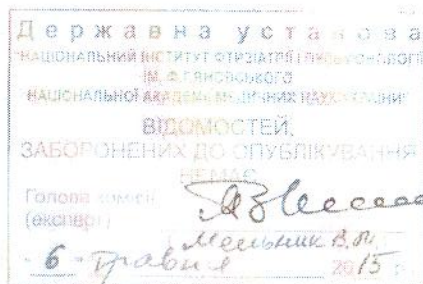 Державна установа
"НАЦІОНАЛЬНИЙ ІНСТИТУТ ФТИЗІАТРІЇ І ПУЛЬМОНОЛОГІЇ
ІМ. Ф.Г.ЯНОВСЬКОГО
НАЦІОНАЛЬНОЇ АКАДЕМІЇ МЕДИЧНИХ НАУК УКРАЇНИ"
ВІДОМОСТЕЙ,
ЗАБОРОНЕНИХ ДО ОПУБЛІКУВАННЯ
НЕМАЄ
Голова комісії
(експерт)
Мельник В.М.
"6" травня 2015 р.